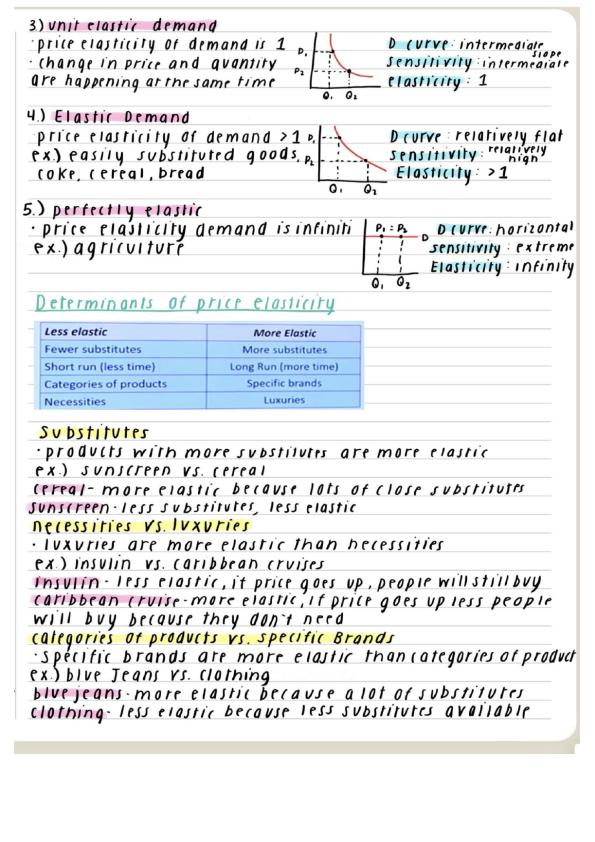 3) unit elastic demand
· price elasticity of demand is 1
· change in price and quantity
are happening at the same time
P₁
P₂
Q₁ Q₂
D curve: intermediate slope
sensitivity: intermediate
elasticity: 1
4.) Elastic Demand
price elasticity of demand >1
ex.) easily substituted goods,
coke, cereal, bread
P₁
P₂
Q₁ Q₂
D curve: relatively flat
sensitivity: relatively high
Elasticity: >1
5.) perfectly elastic
· price elasticity demand is infiniti
ex.) agriculture
P₁ = P₂
D
Q₁ Q₂
D curve: horizontal
sensitivity: extreme
Elasticity: infinity
Determinants of price elasticity
Less elastic More Elastic
Fewer substitutes More substitutes
Short run (less time) Long Run (more time)
Categories of products Specific brands
Necessities Luxuries
Substitutes
· products with more substitutes are more elastic
ex.) sunscreen vs. cereal
cereal - more elastic because lots of close substitutes
sunscreen - less substitutes, less elastic
necessities vs. luxuries
· luxuries are more elastic than necessities
ex.) insulin vs. caribbean cruises
Insulin - less elastic, if price goes up, people will still buy
caribbean cruise - more elastic, if price goes up less people
will buy because they don't need
categories of products vs. specific Brands
· specific brands are more elastic than categories of product
ex.) blue Jeans vs. clothing
blue jeans - more elastic because a lot of substitutes
clothing - less elastic because less substitutes available